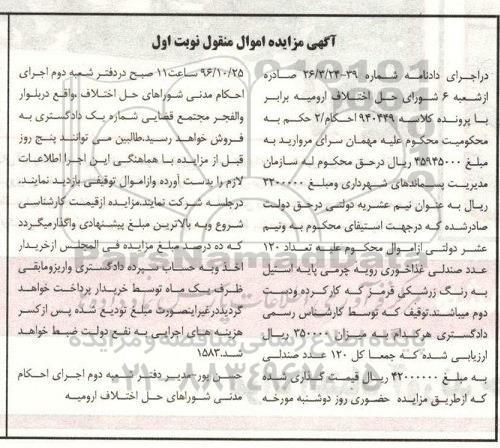 آگهی مزایده اموال منقول نوبت اول
دراجرای دادنامه شماره ۳۹-۲۶/۳/۲۴ صادره
ازشعبه ۶ شورای حل اختلاف ارومیه برابر
با پرونده کلاسه ۹۴۰۴۴۹ احکام/۲ حکم به
محکومیت محکوم علیه مهمان سرای مروارید به
مبلغ ۴۵۹۴۵۰۰۰ ریال درحق محکوم له سازمان
مدیریت پسماندهای شهرداری ومبلغ ۲۲۰۰۰۰۰
ریال به عنوان نیم عشریه دولتی درحق دولت
صادرشده که درجهت استیفای محکوم به ونیم
عشر دولتی ازاموال محکوم علیه تعداد ۱۲۰
عدد صندلی غذاخوری رویه چرمی پایه استیل
به رنگ زرشکی قرمز که کارکرده ودست
دوم میباشند.توقیف که توسط کارشناس رسمی
دادگستری هرکدام به میزان ۳۵۰۰۰۰ ریال
ارزیابی شده که جمعا کل ۱۲۰ عدد صندلی
به مبلغ ۴۲۰۰۰۰۰۰ ریال قیمت گذاری شده
که ازطریق مزایده حضوری روز دوشنبه مورخه
۹۶/۱۰/۲۵ ساعت۱۱ صبح دردفتر شعبه دوم اجرای
احکام مدنی شوراهای حل اختلاف .واقع دربلوار
والفجر مجتمع قضایی شماره یک دادگستری به
فروش خواهد رسید.طالبین می توانند پنج روز
قبل از مزایده با هماهنگی این اجرا اطلاعات
لازم را بدست آورده وازاموال توقیفی بازدید نمایند.
درجلسه شرکت نمایند.مزایده ازقیمت کارشناسی
شروع وبه بالاترین مبلغ پیشنهادی واگذارمیگردد
که ده درصد مبلغ مزایده فی المجلس ازخریدار
اخذ وبه حساب سپرده دادگستری واریزومابقی
ظرف یک ماه توسط خریدار پرداخت خواهد
گردیددرغیراینصورت مبلغ تودیع شده پس ازکسر
هزینه های اجرایی به نفع دولت ضبط خواهد
شد.۱۵۸۳
حسن پور-مدیر دفتر شعبه دوم اجرای احکام
مدنی شوراهای حل اختلاف ارومیه
ParsNamadData
پایگاه اطلاع رسانی مناقصه و مزایده
۰۲۱-۸۸۳۴۹۶۷۰-۵